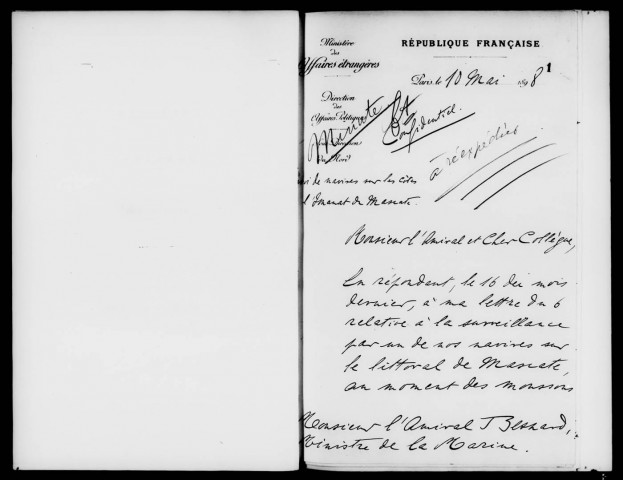 Ministère
des
Affaires étrangères
RÉPUBLIQUE FRANÇAISE
1
Paris, le 10 Mai 1898
Direction
des
Affaires Politiques
Minute
Confidentiel.
du Nord
à réexpédier
de navires sur les côtes
l'Imanat de Mascate.
Monsieur l'Amiral et Cher Collègue,
En répondant, le 16 du mois
dernier, à ma lettre du 6
relative à la surveillance
par un de nos navires sur
le littoral de Mascate,
au moment des moussons
Monsieur l'Amiral Besnard,
Ministre de la Marine.